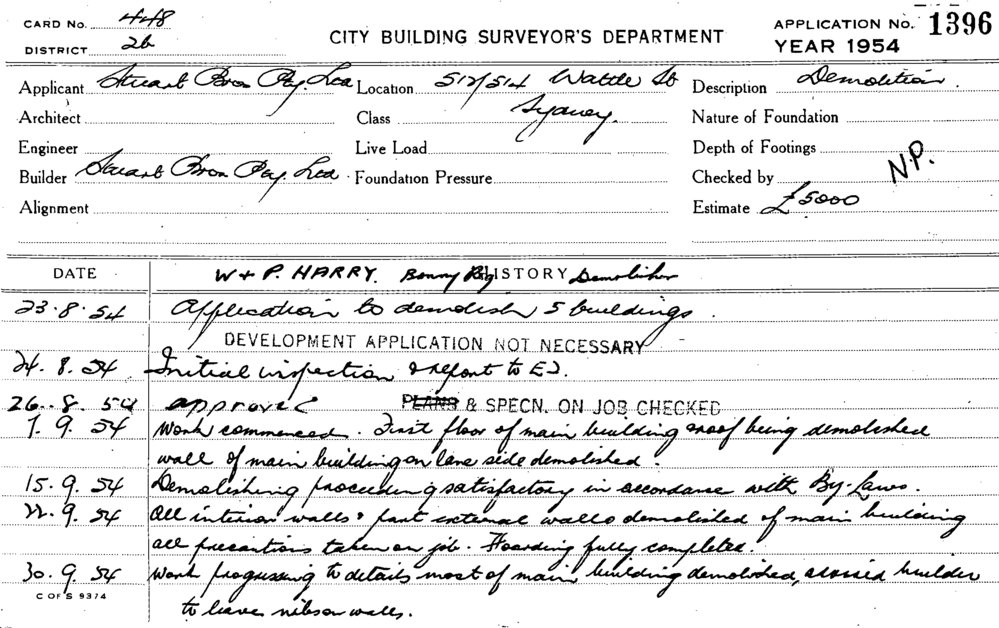 CARD No. 448
DISTRICT 2b
CITY BUILDING SURVEYOR'S DEPARTMENT
APPLICATION No. 1396
YEAR 1954
Applicant Stuart Bros Pty. Ltd Location 512/514 Wattle St Description Demolition.
Architect Class Sydney. Nature of Foundation
Engineer Live Load Depth of Footings
Builder Stuart Bros Pty. Ltd. Foundation Pressure Checked by N.P.
Alignment Estimate £5000
DATE W & P. HARRY. HISTORY Demolisher
23.8.54 Application to demolish 5 buildings.
DEVELOPMENT APPLICATION NOT NECESSARY
24.8.54 Initial inspection & report to
26.8.54 approved PLANS & SPECN. ON JOB CHECKED
7.9.54 Work commenced. First floor of main building & roof being demolished
wall of main building on lane side demolished.
15.9.54 Demolishing proceeding satisfactory in accordance with By-Laws.
22.9.54 All interior walls & part external walls demolished of main building
all precautions taken on job. Hoarding fully completed.
30.9.54 Work progressing to details most of main building demolished, advised builder
to leave nibs on walls.
C OF S 9374